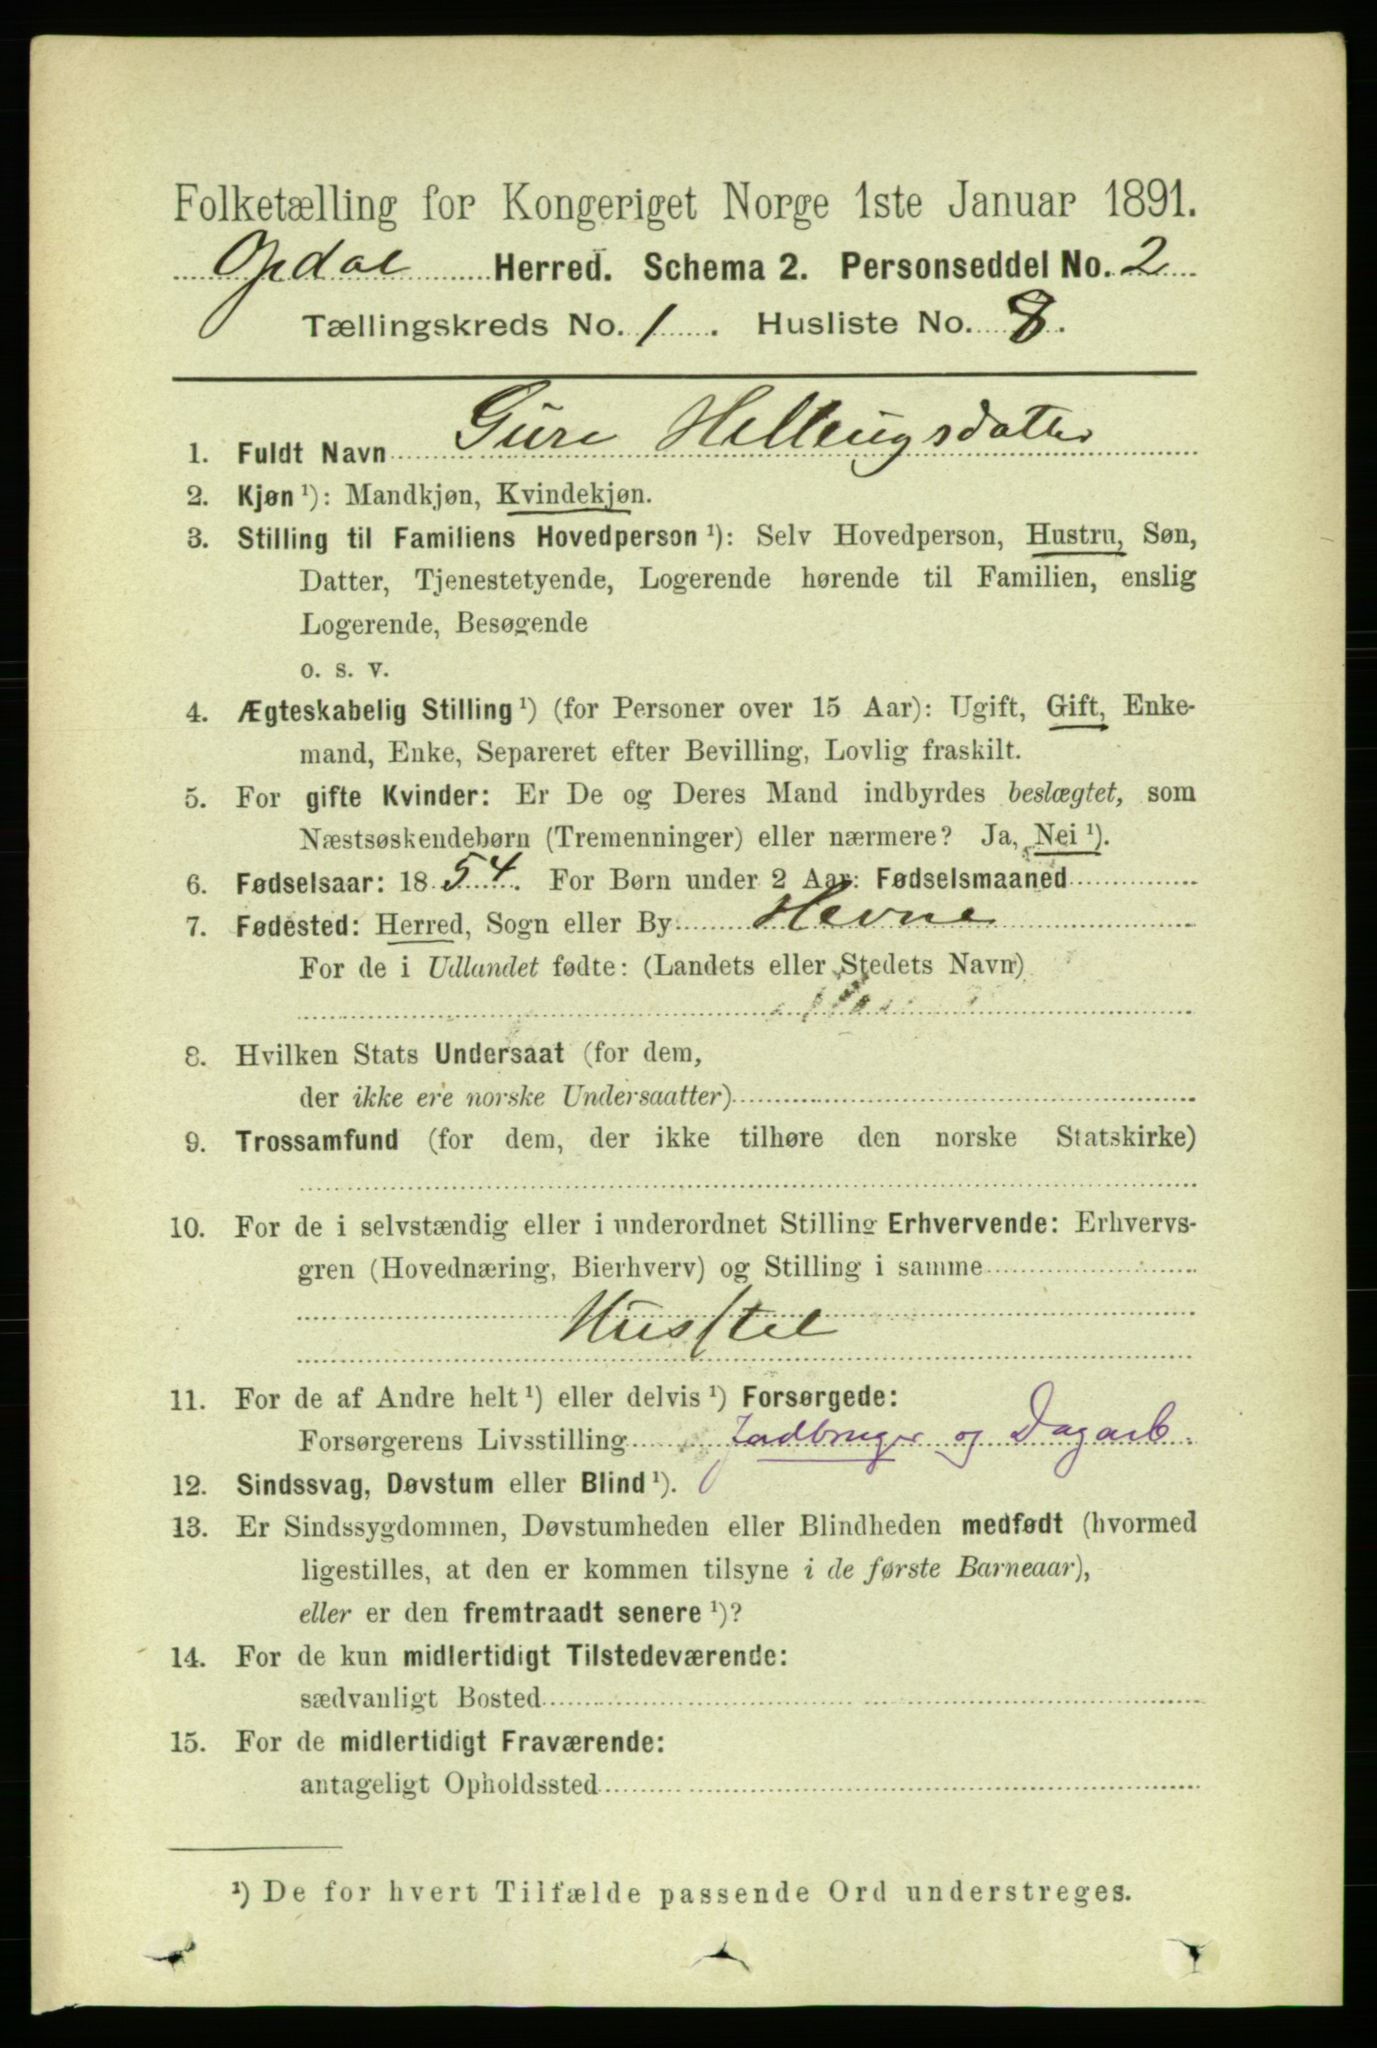 Folketælling for Kongeriget Norge 1ste Januar 1891.
Opdal Herred. Schema 2. Personseddel No. 2
Tællingskreds No. 1. Husliste No. 8.
1. Fuldt Navn Guri Helleugsdatter
2. Kjøn ¹): Mandkjøn, Kvindekjøn.
3. Stilling til Familiens Hovedperson ¹): Selv Hovedperson, Hustru, Søn,
Datter, Tjenestetyende, Logerende hørende til Familien, enslig
Logerende, Besøgende
o. s. v.
4. Ægteskabelig Stilling ¹) (for Personer over 15 Aar): Ugift, Gift, Enke-
mand, Enke, Separeret efter Bevilling, Lovlig fraskilt.
5. For gifte Kvinder: Er De og Deres Mand indbyrdes beslægtet, som
Næstsøskendebørn (Tremenninger) eller nærmere? Ja, Nei ¹).
6. Fødselsaar: 1854. For Børn under 2 Aar: Fødselsmaaned
7. Fødested: Herred, Sogn eller By Hevne
For de i Udlandet fødte: (Landets eller Stedets Navn)
8. Hvilken Stats Undersaat (for dem,
der ikke ere norske Undersaatter)
9. Trossamfund (for dem, der ikke tilhøre den norske Statskirke)
10. For de i selvstændig eller i underordnet Stilling Erhvervende: Erhvervs-
gren (Hovednæring, Bierhverv) og Stilling i samme
Husstel
11. For de af Andre helt ¹) eller delvis ¹) Forsørgede:
Forsørgerens Livsstilling Jordbruger og Dagarb.
12. Sindssvag, Døvstum eller Blind ¹).
13. Er Sindssygdommen, Døvstumheden eller Blindheden medfødt (hvormed
ligestilles, at den er kommen tilsyne i de første Barneaar),
eller er den fremtraadt senere ¹)?
14. For de kun midlertidigt Tilstedeværende:
sædvanligt Bosted
15. For de midlertidigt Fraværende:
antageligt Opholdssted
¹) De for hvert Tilfælde passende Ord understreges.